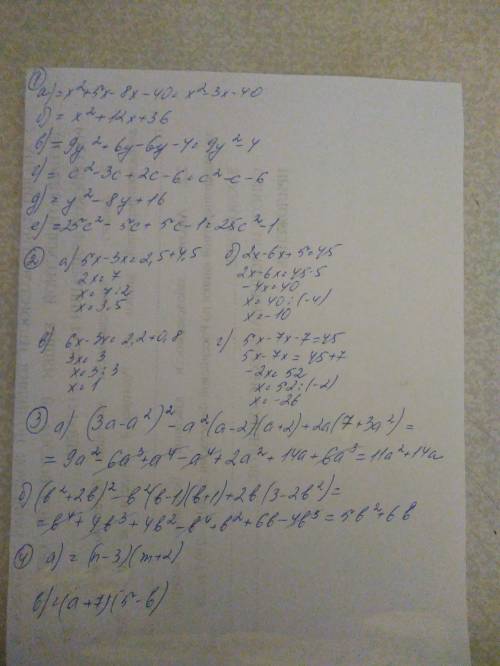 ①
а) = x²+5x-8x-40 = x²-3x-40
б) = x²+12x+36
в) = 9y²+6y-6y-4 = 9y²-4
г) = c²-3c+2c-6 = c²-c-6
д) = y²-8y+16
е) = 25c²-5c+5c-1 = 25c²-1
② а) 5x-3x=2,5+4,5
2x=7
x=7:2
x=3.5
б) 2x-6x+5=45
2x-6x=45-5
-4x=40
x=40:(-4)
x=-10
в) 6x-3x=2,2+0,8
3x=3
x=3:3
x=1
г) 5x-7x-7=45
5x-7x=45+7
-2x=52
x=52:(-2)
x=-26
③ а) (3a-a²)²-a²(a-2)(a+2)+2a(7+3a²)=
=9a²-6a³+a⁴-a⁴+2a²+14a+6a³=11a²+14a
б) (b²+2b)²-b²(b-1)(b+1)+2b(3-2b²)=
=b⁴+4b³+4b²-b⁴+b²+6b-4b³=5b²+6b
④ а) = (n-3)(m+2)
в) = (a+7)(5-b)